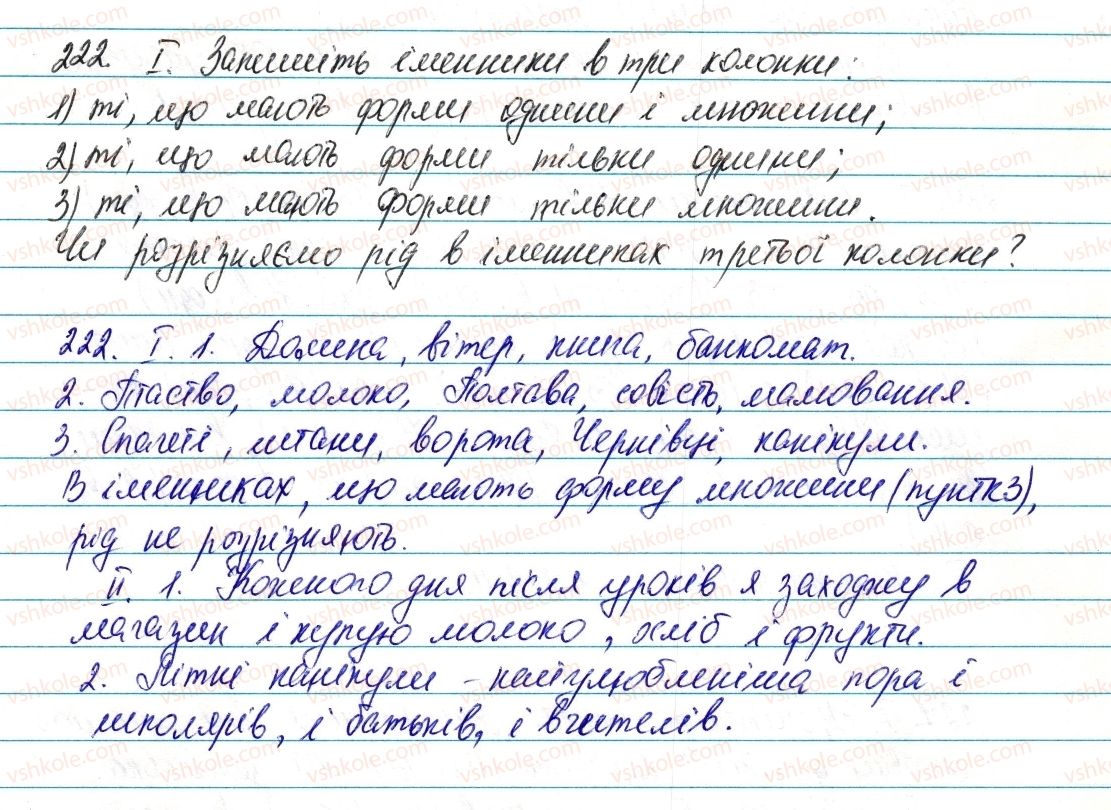 222. I. Запишіть іменники в три колонки:
1) ті, що мають форми однини і множини;
2) ті, що мають форми тільки однини;
3) ті, що мають форми тільки множини.
Чи розрізняємо рід в іменниках третьої колонки?
222. I. 1. Долина, вітер, книга, банкомат.
2. Птаство, молоко, Полтава, совість, малювання.
3. Спагеті, штани, ворота, Чернівці, канікули.
В іменниках, що мають форму множини (пунтк3),
рід не розрізняють.
II. 1. Кожного дня після уроків я заходжу в
магазин і купую молоко, хліб і фрукти.
2. Літні канікули - найулюбленіша пора і
школярів, і батьків, і вчителів.